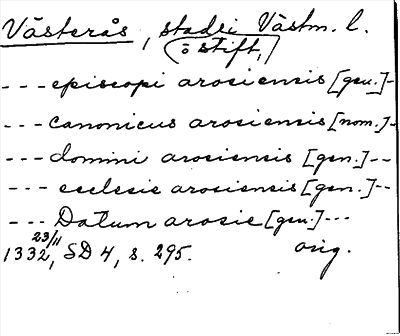 Västerås, stad i Västm. l.
(o stift,)
---episcopi arosiensis [gen.]-
---canonicus arosiensis [nom.]-
---domini arosiensis [gen.]--
---ecclesie arosiensis [gen.]--
---Datum arosie [gen.]---
23/11
1332, SD 4, s. 295. orig.